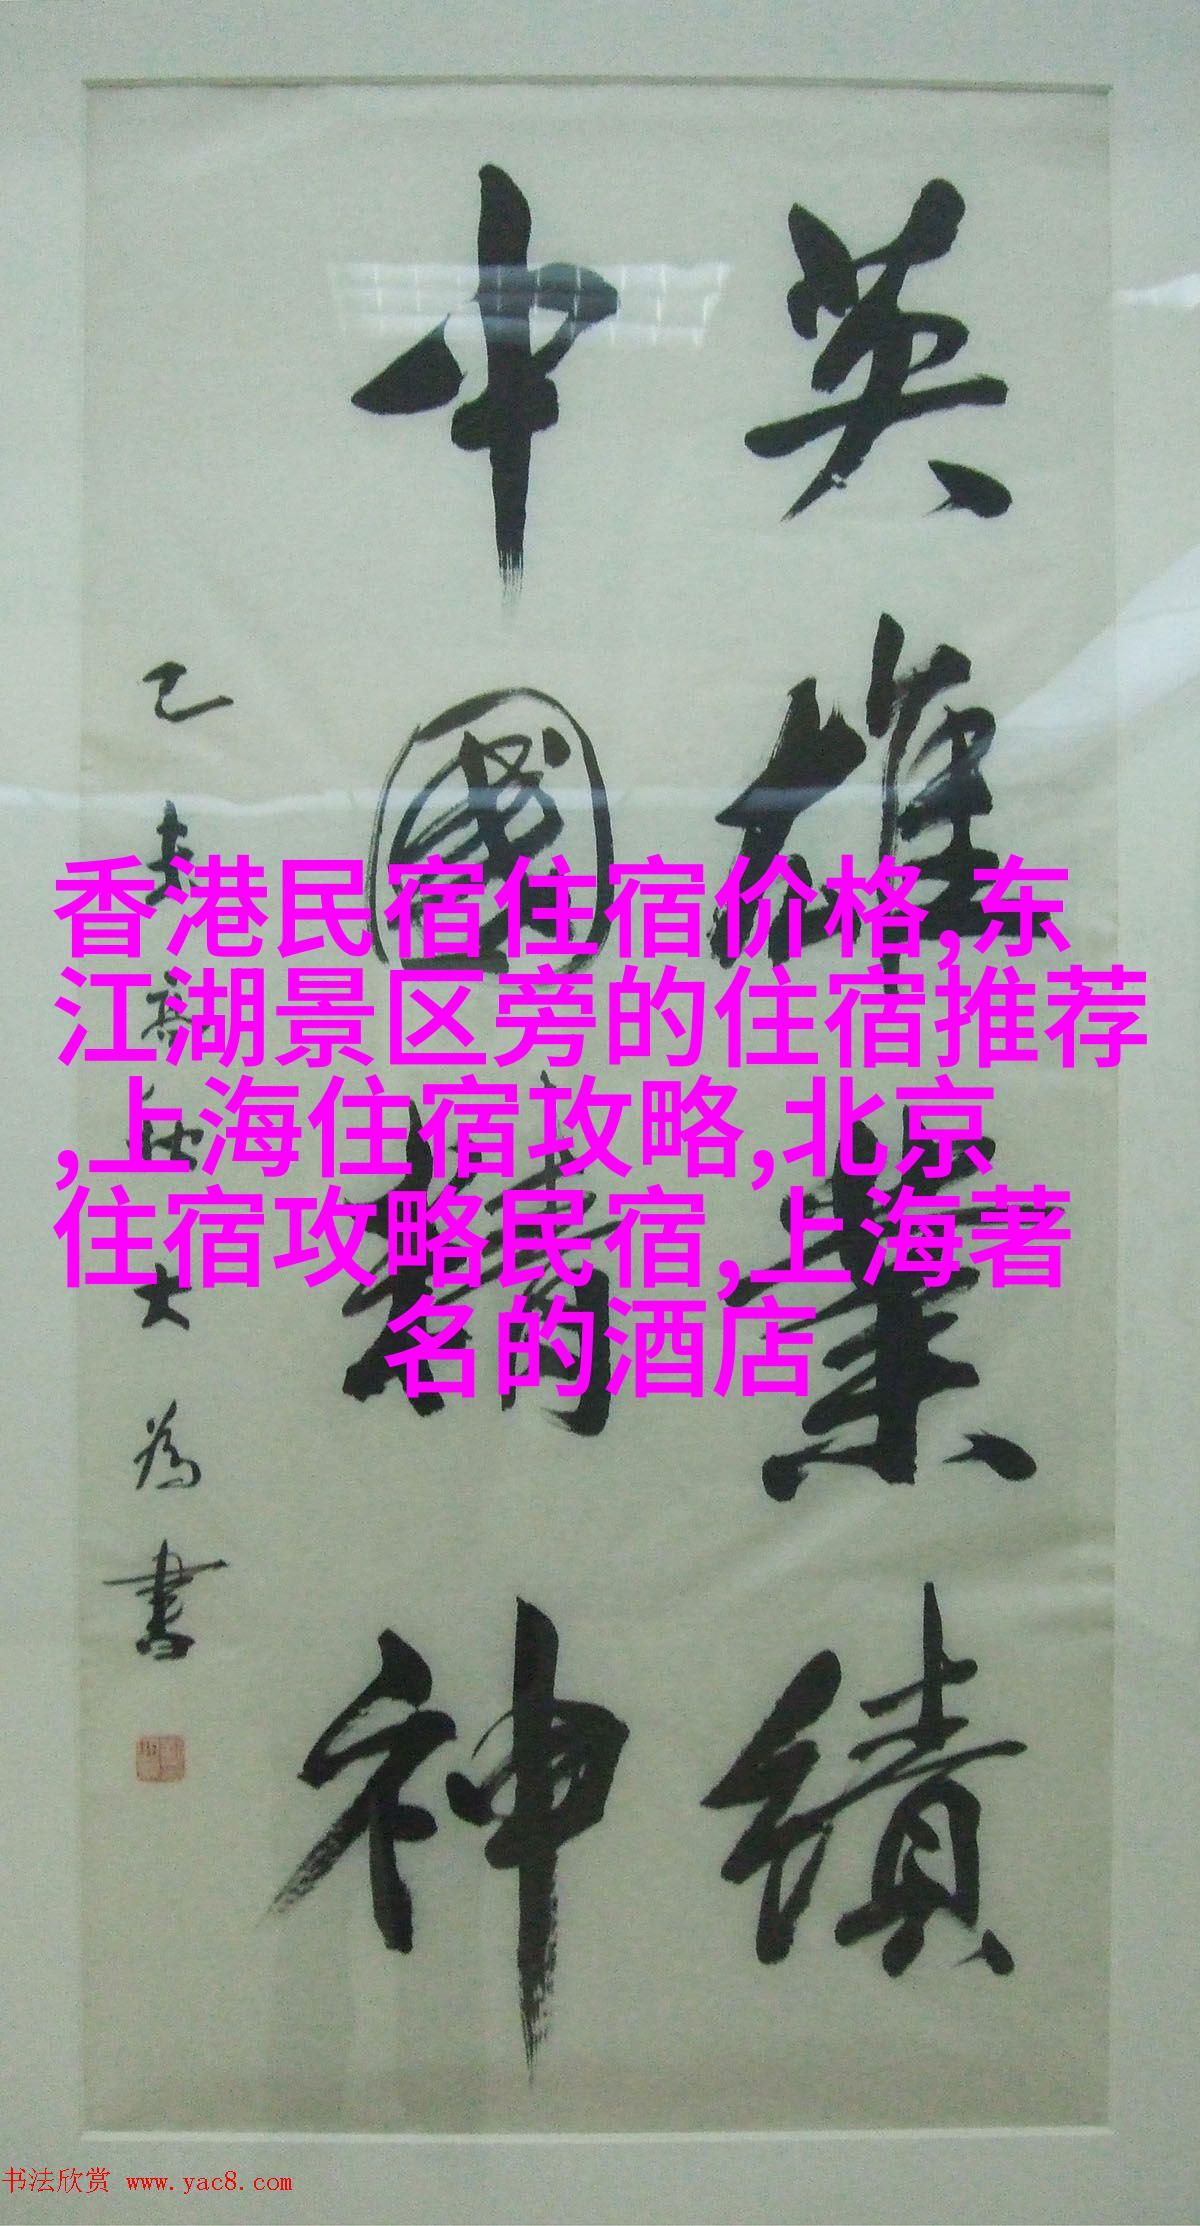 英雄業績
中國精神
大為書
香港民宿住宿价格,东
江湖景区旁的住宿推荐
,上海住宿攻略,北京
住宿攻略民宿,上海著
名的酒店
书法欣赏 www.yac8.com